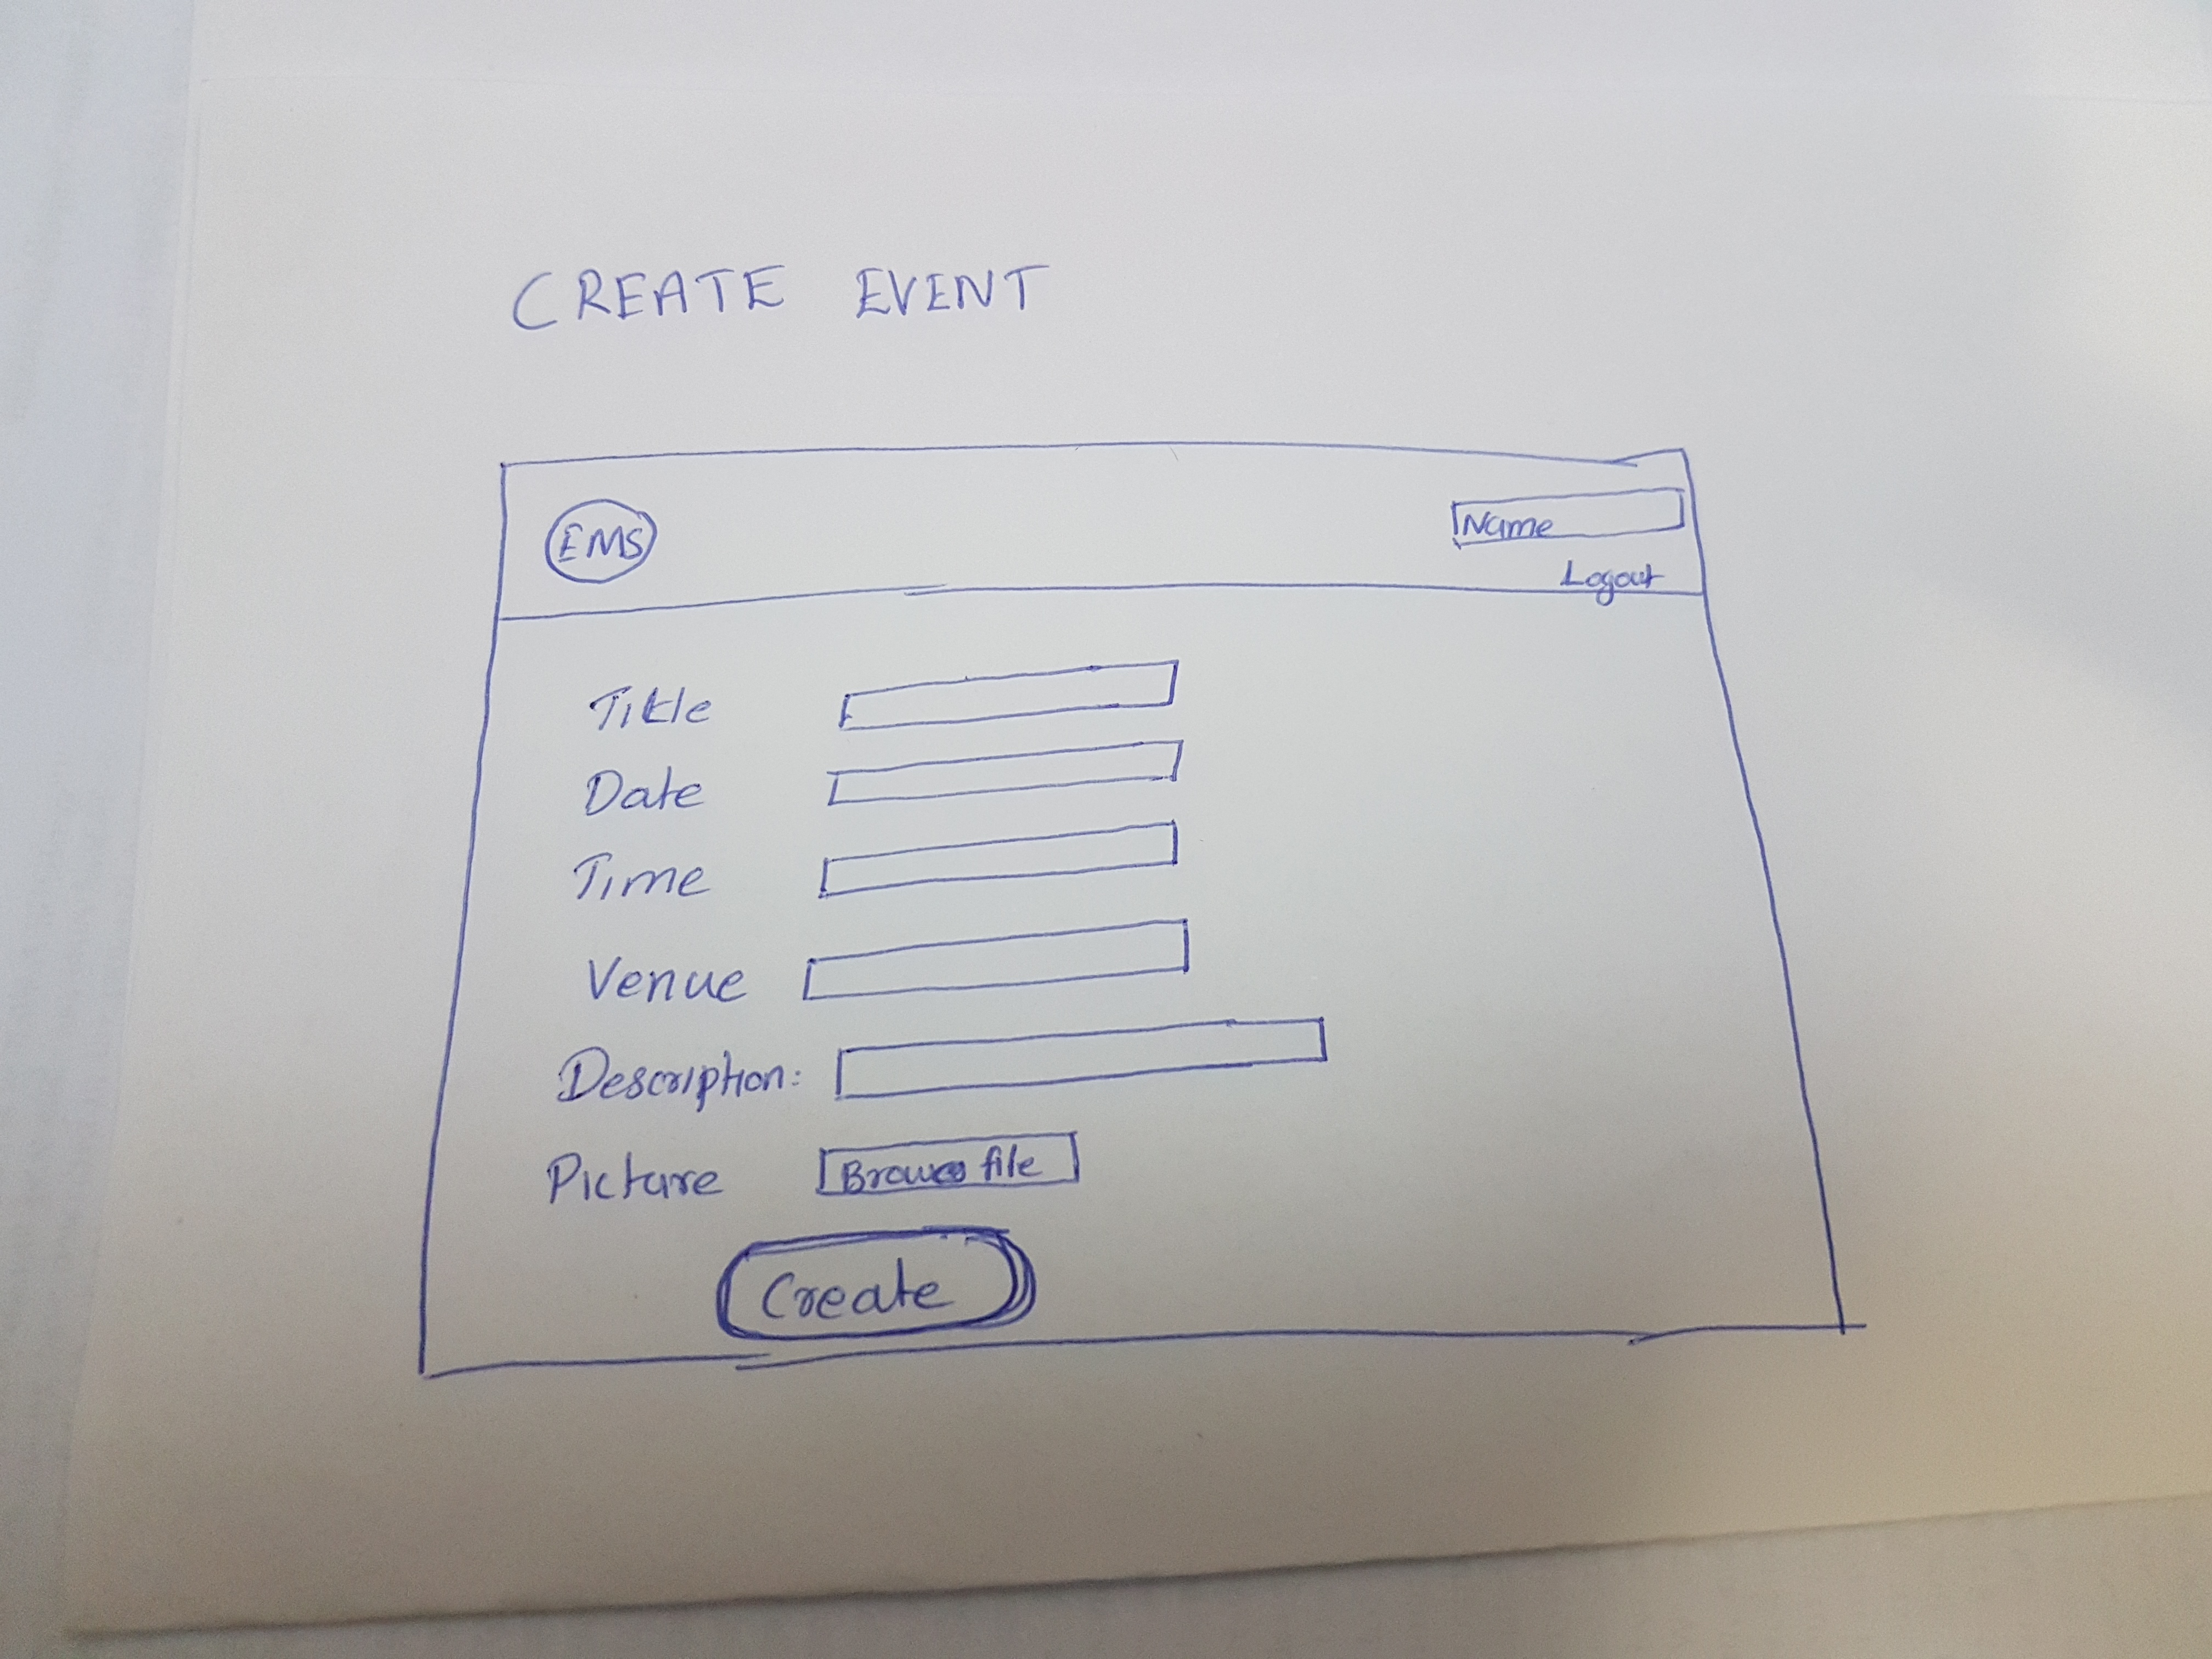 CREATE EVENT
EMS
Name
Logout
Title
Date
Time
Venue
Description:
Picture
file
Create